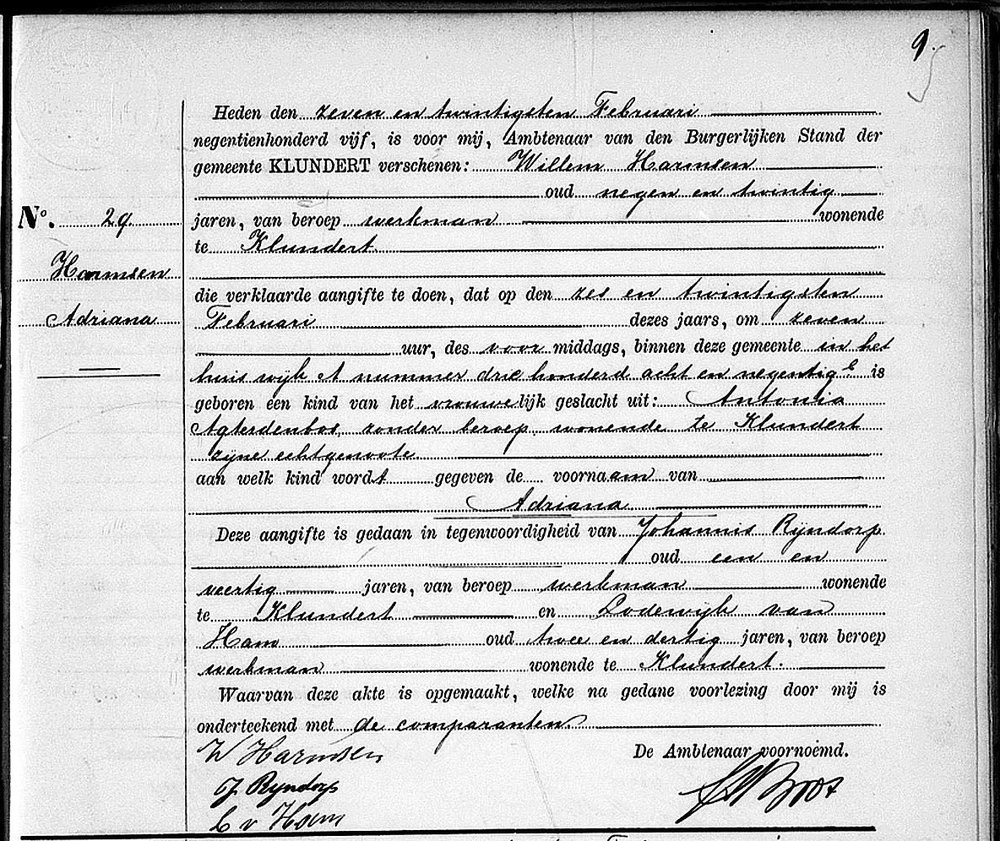 9.
Heden den zeven en twintigsten Februari
negentienhonderd vijf, is voor mij, Ambtenaar van den Burgerlijken Stand der
gemeente KLUNDERT verschenen: Willem Harmsen
oud negen en twintig
No. 29. jaren, van beroep werkman wonende
te Klundert
Harmsen
die verklaarde aangifte te doen, dat op den zes en twintigsten
Adriana Februari dezes jaars, om zeven
uur, des voor middags, binnen deze gemeente in het
huis wijk A nummer drie honderd acht en negentig E is
geboren een kind van het vrouwelijk geslacht uit: Antonia
Agterdenbos, zonder beroep, wonende te Klundert
zijne echtgenoote
aan welk kind wordt gegeven de voornaam van
Adriana
Deze aangifte is gedaan in tegenwoordigheid van Johannis Rijndorp
oud een en
veertig jaren, van beroep werkman wonende
te Klundert en Lodewijk van
Ham oud twee en dertig jaren, van beroep
werkman wonende te Klundert.
Waarvan deze akte is opgemaakt, welke na gedane voorlezing door mij is
onderteekend met de comparanten
W Harmsen De Ambtenaar voornoemd.
J Rijndorp
L v Ham